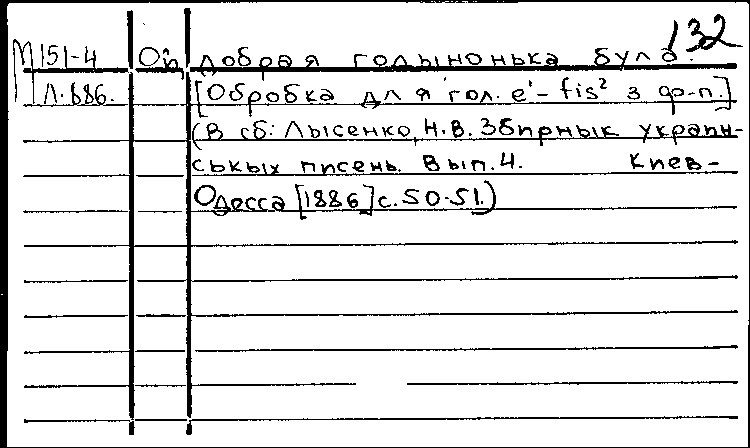 132
М 151-4 Ой, добрая годынонька була.
Л.686. [Обробка для гол. e'-fis² з ф-п.]
(В сб: Лысенко, Н.В. Збирнык украин-
ськых писень. Вып.4. Киев-
Одесса [1886] с.50-51.)